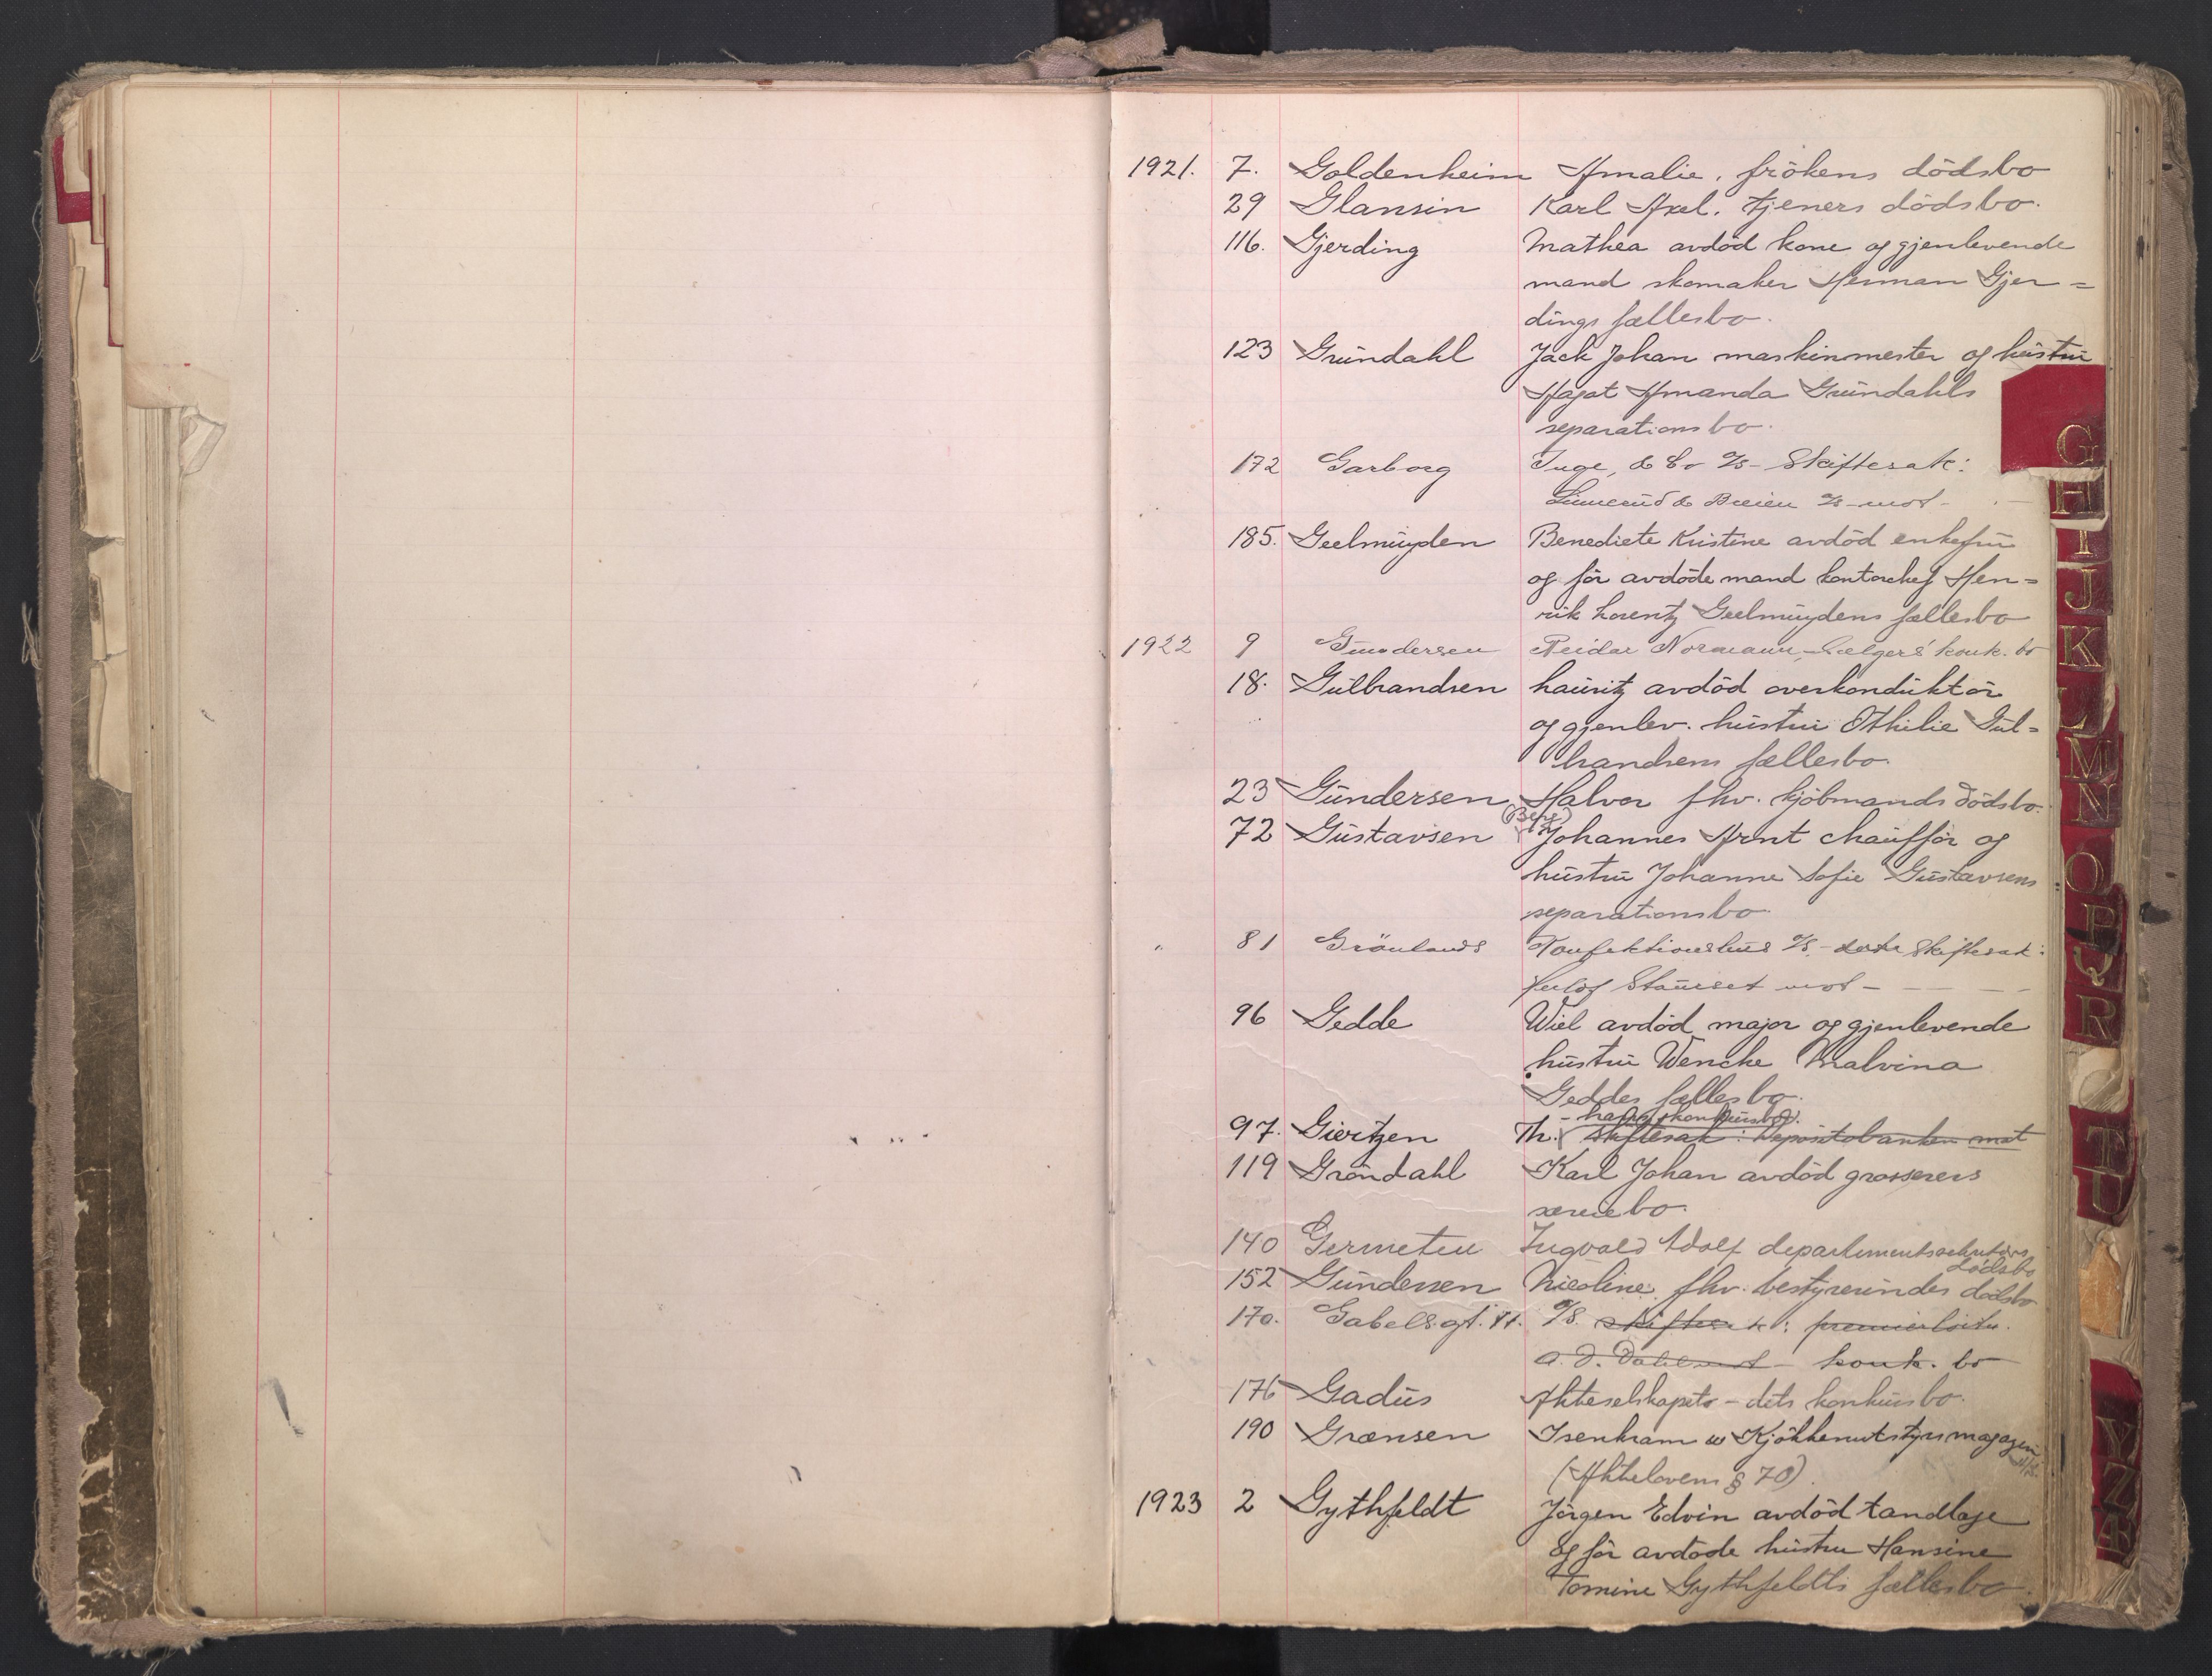 1921. 7. Goldenheim Amalie, frökens dödsbo
29 Glansin Karl Axel, tjeners dödsbo.
116. Gjerding Mathea avdöd kone og gjenlevende
mand skomaker Herman Gjer=
dings fællesbo.
123 Gründahl Jack Johan maskinmester og hustru
Agat Amanda Gründahls
separationsbo.
172 Garborg Inge, & Co A/S - Skiftesak:
& Breien A/S mot -
185. Geelmuyden Benedicte Kristine avdöd enkefru
og för avdöde mand kontorchef Hen=
rik Lorentz Geelmuydens fællesbo
1922 9 Gundersen Reidar Normann, Sælgers konk. bo
18. Gulbrandsen Lauritz avdöd overkonduktör
og gjenlev. hustru Othilie Gul=
brandsens fællesbo.
23 Gundersen Halvor fhv. kjöbmands dödsbo.
72 Gustavsen Johannes Arnt chaufför og
hustru Johanne Sofie Gustavsens
separationsbo.
" 81 Grönlands Konfektionshus A/S - dets Skiftesak:
mot -
96 Gedde Wiel avdöd major og gjenlevende
hustru Wencke Malvina
Geddes fællesbo.
- konkursbo.
97. Giertzen Th. Skiftesak: Depositobanken mot
119 Gröndahl Karl Johan avdöd grosserers
særebo.
140 Germeten Ingvald Adolf departementssekretærs
dödsbo
152 Gundersen Nicoline, fhv. bestyrerindes dödsbo
170. Gabelsgt. 41. A/S. skiftesak: premierlöitn.
O. D. Dahl mot - konk. bo
176 Gadus Aktieselskapets - dets konkursbo.
190 Grænsen Isenkram & Kjökkenutstyrsmagazin
A/S.
(Aktielovens § 70).
1923 2 Gythfeldt Jörgen Edvin avdöd tandlæge
og för avdöde hustru Hansine
Tomine Gythfeldts fællesbo.
G
H
I
J
K
L
M
N
O
P
Q
R
T
U
Y
Z